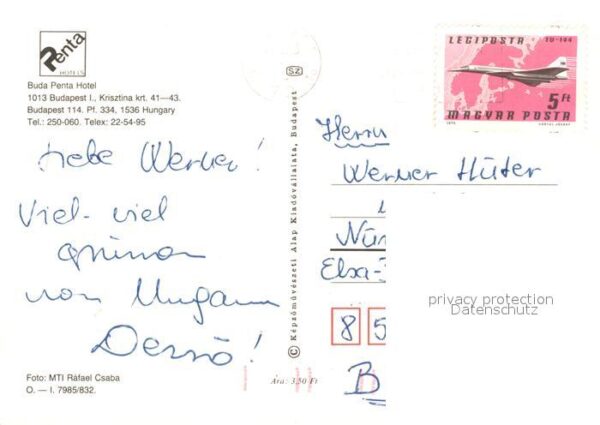 Penta
HOTELS
Buda Penta Hotel
1013 Budapest I., Krisztina krt. 41—43.
Budapest 114. Pf. 334, 1536 Hungary
Tel.: 250-060. Telex: 22-54-95
Liebe Werner!
Viel-viel
von Ungarn
Dezső!
Foto: MTI Ráfael Csaba
O. — I. 7985/832.
SZ
© Képzőművészeti Alap Kiadóvállalata, Budapest
Ára: 3,50 Ft
LÉGIPOSTA TU-144
5 Ft
MAGYAR POSTA
Herrn
Werner Hüter
Nür
Elsa-
8 5
B
privacy protection
Datenschutz